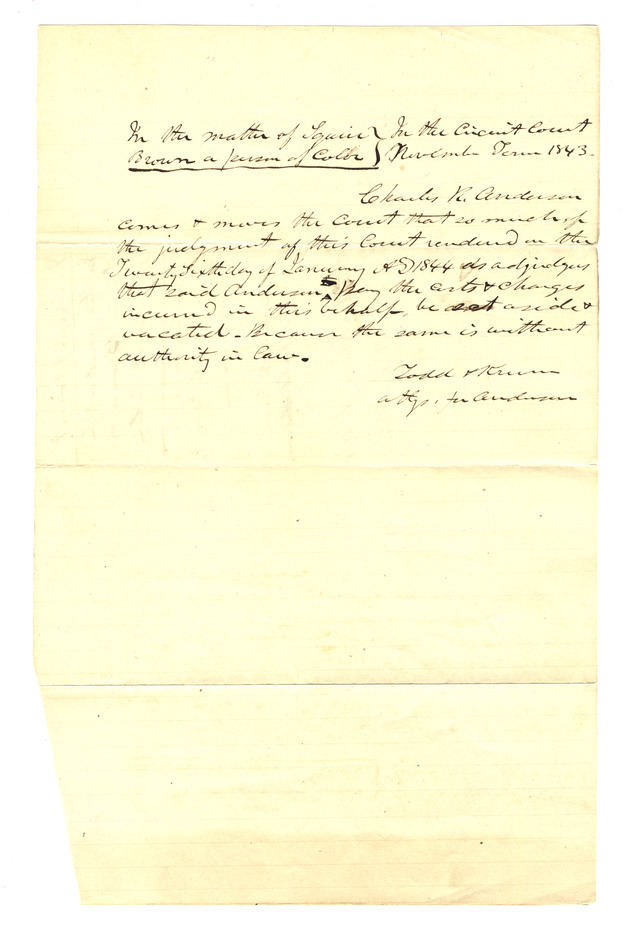 In the matter of Squire } In the Circuit Court
Brown a person of Color } November Term 1843.
Charles R. Anderson
comes & moves the Court that so much of
the judgment of this Court rendered on the
Twenty Sixth day of January AD 1844 as adjudges
that said Anderson to pay the costs & charges
incurred in this behalf, be set aside &
vacated. Because the same is without
authority in Law.
Todd & Krum
attys. for Anderson